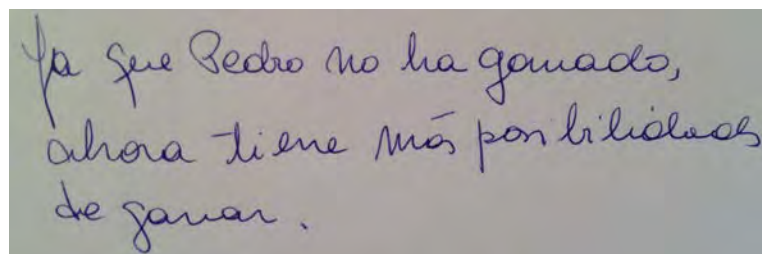 Ya que Pedro no ha ganado,
ahora tiene más posibilidades
de ganar.